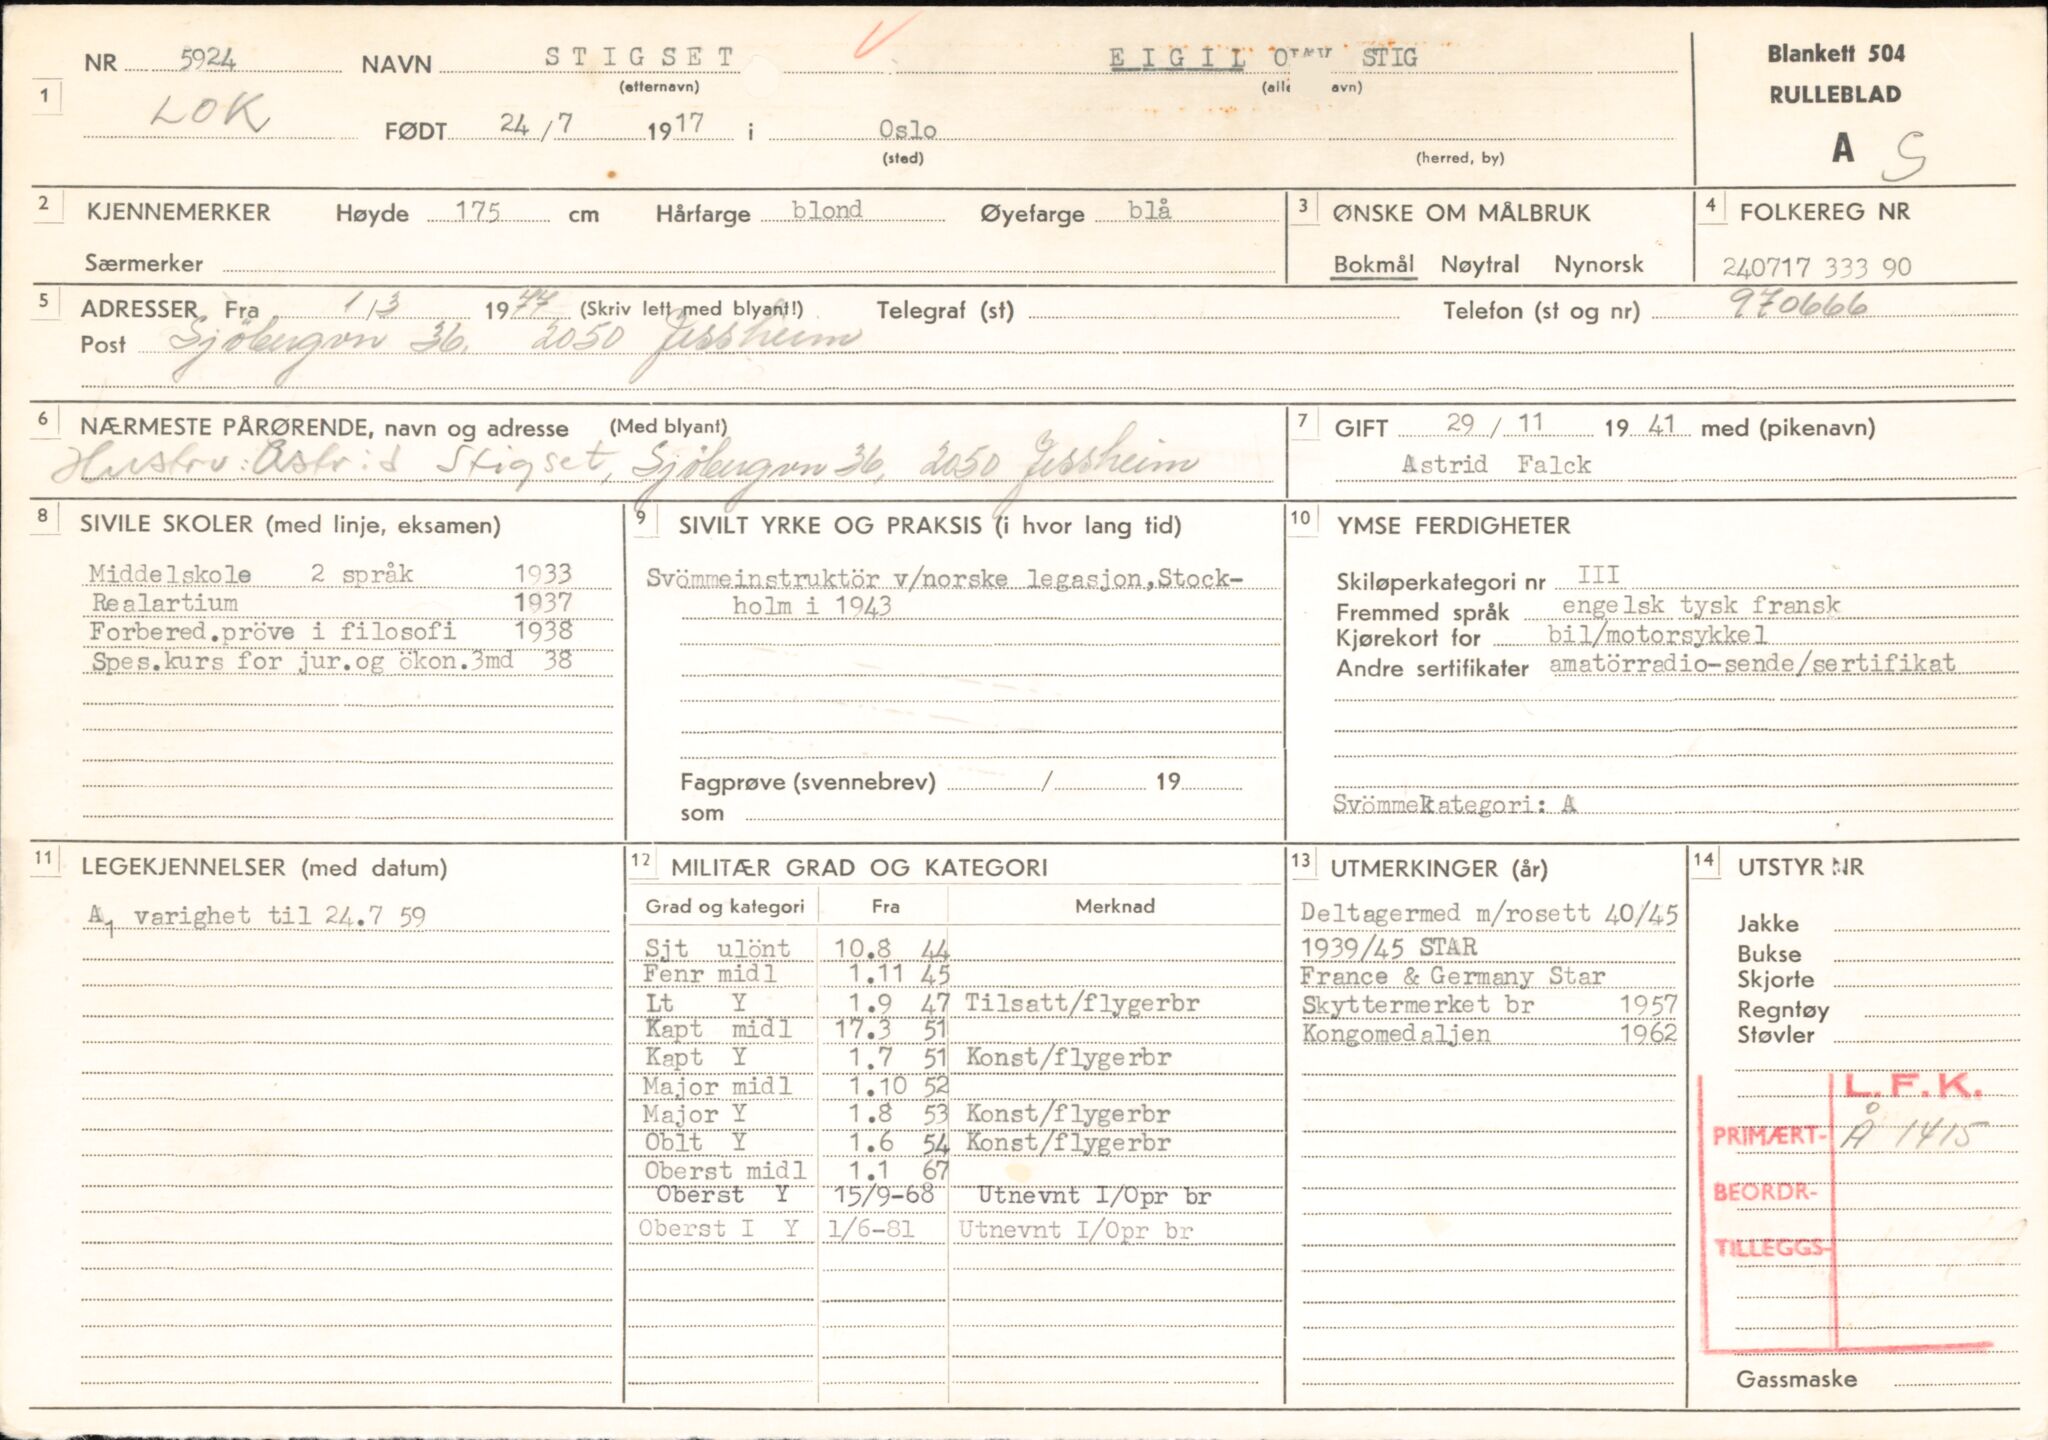 NR 5924 NAVN STIGSET EIGIL STIG Blankett 504
(etternavn) RULLEBLAD
1 LOK FØDT 24/7 1917 i Oslo A S
(sted) (herred, by)
2 KJENNEMERKER Høyde 175 cm Hårfarge blond Øyefarge blå
Særmerker
3 ØNSKE OM MÅLBRUK
Bokmål Nøytral Nynorsk
4 FOLKEREG NR
240717 333 90
5 ADRESSER Fra 1/3 1977 (Skriv lett med blyant!) Telegraf (st) Telefon (st og nr) 970666
Post Sjöbergvn 36, 2050 Jessheim
6 NÆRMESTE PÅRØRENDE, navn og adresse (Med blyant)
Hustru: Astrid Stigset, Sjöbergvn 36, 2050 Jessheim
7 GIFT 29/11 1941 med (pikenavn)
Astrid Falck
8 SIVILE SKOLER (med linje, eksamen)
Middelskole 2 språk 1933
Realartium 1937
Forbered.pröve i filosofi 1938
Spes.kurs for jur.og ökon.3md 38
9 SIVILT YRKE OG PRAKSIS (i hvor lang tid)
Svömmeinstruktör v/norske legasjon,Stock-
holm i 1943
Fagprøve (svennebrev) / 19
som
10 YMSE FERDIGHETER
Skiløperkategori nr III
Fremmed språk engelsk tysk fransk
Kjørekort for bil/motorsykkel
Andre sertifikater amatörradio-sende/sertifikat
Svömmekategori: A
11 LEGEKJENNELSER (med datum)
A1 varighet til 24.7 59
12 MILITÆR GRAD OG KATEGORI
Grad og kategori Fra Merknad
Sjt ulönt 10.8 44
Fenr midl 1.11 45
Lt Y 1.9 47 Tilsatt/flygerbr
Kapt midl 17.3 51
Kapt Y 1.7 51 Konst/flygerbr
Major midl 1.10 52
Major Y 1.8 53 Konst/flygerbr
Oblt Y 1.6 54 Konst/flygerbr
Oberst midl 1.1 67
Oberst Y 15/9-68 Utnevnt I/Opr br
Oberst I Y 1/6-81 Utnevnt I/Opr br
13 UTMERKINGER (år)
Deltagermed m/rosett 40/45
1939/45 STAR
France & Germany Star
Skyttermerket br 1957
Kongomedaljen 1962
14 UTSTYR NR
Jakke
Bukse
Skjorte
Regntøy
Støvler
L.F.K.
PRIMÆRT- Å 1415
BEORDR-
TILLEGGS-
Gassmaske